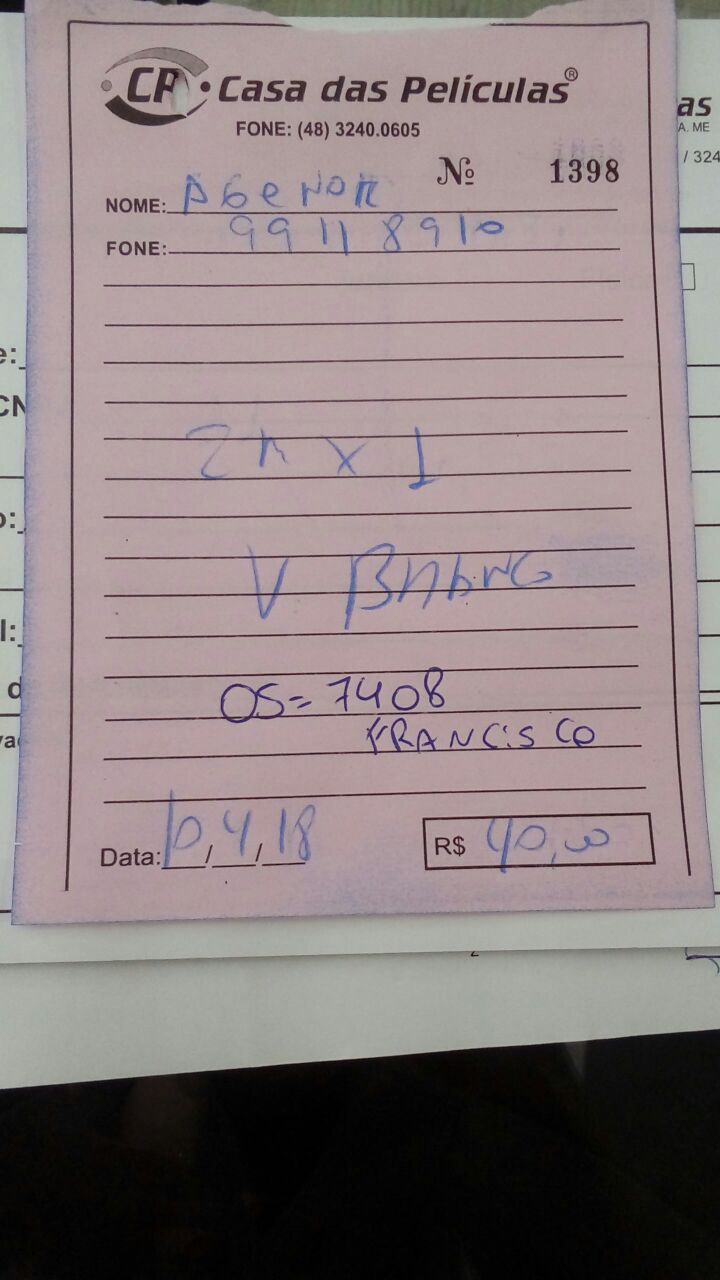 CP Casa das Películas®
FONE: (48) 3240.0605
Nº 1398
NOME: AGENOR
FONE: 99118910
X 1
V
OS= 7408
FRANCISCO
Data: 10/4/18
R$ 40,00
as
A. ME
/ 324
e:
CN
o:
l:
d
va